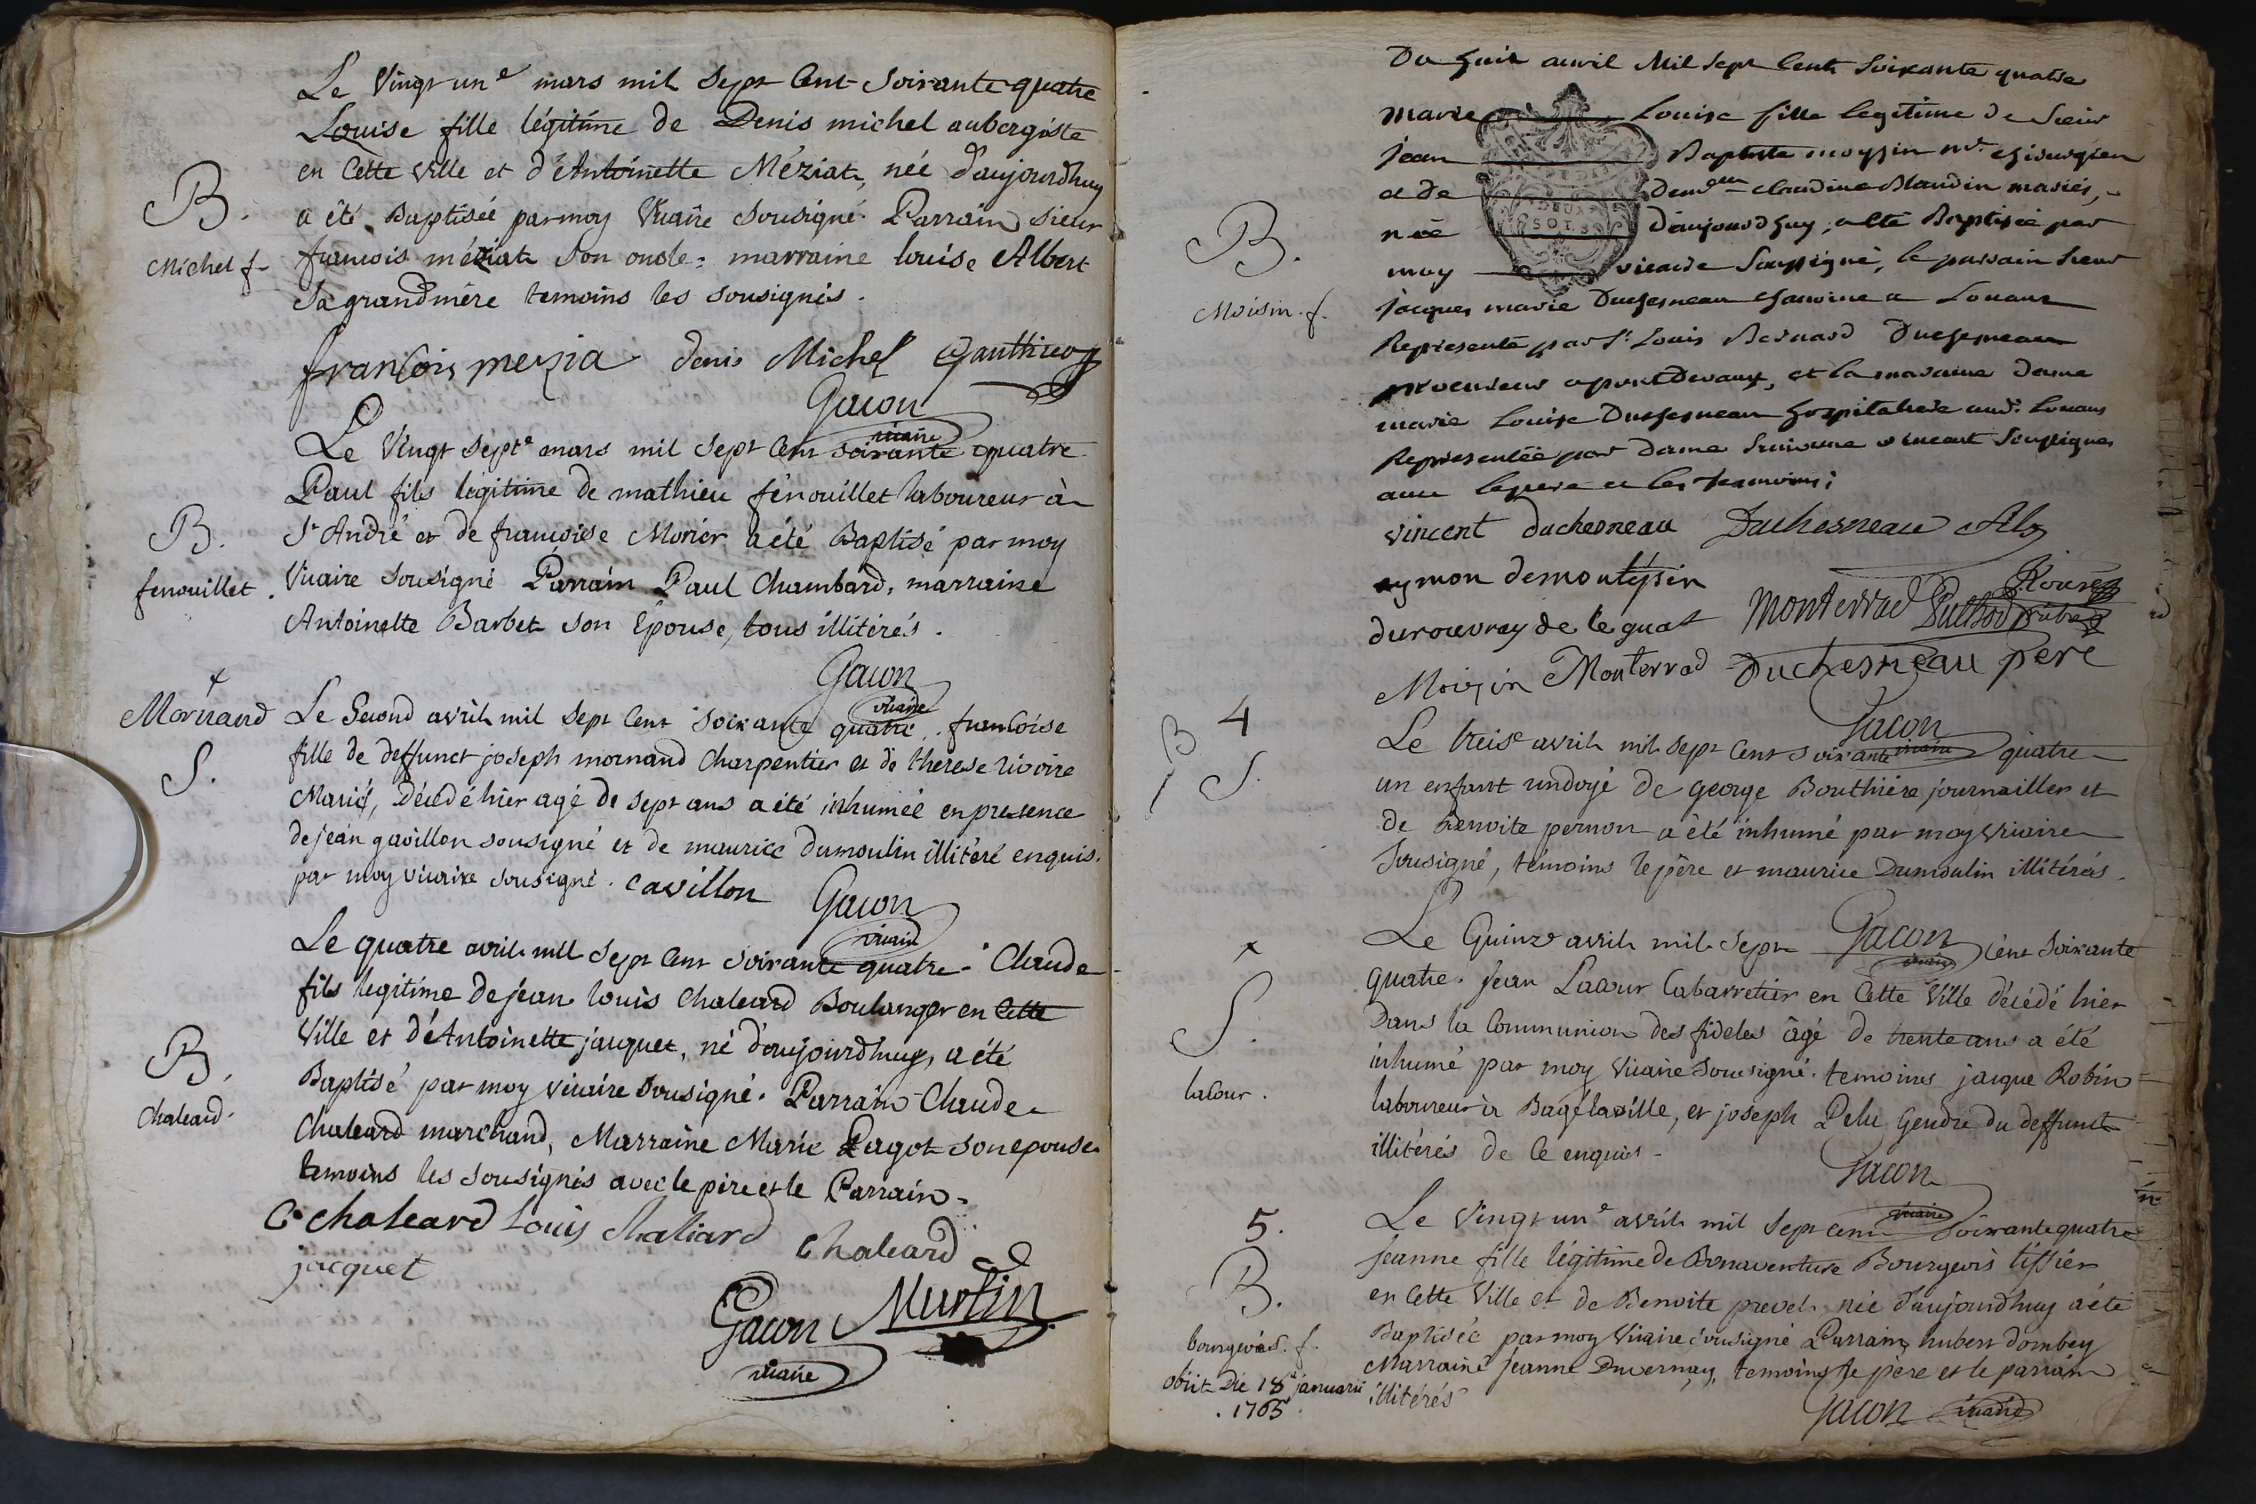 Le Vingt un.e mars mil Sept Cent Soixante quatre
Louise fille légitime de Denis michel aubergiste
en Cette ville et d'Antoinette Méziat, née d'aujourdhuy
B.
a été Baptisée par moy Vicaire Sousigné. Parrain sieur
Michel f.
francois méziat Son oncle: marraine louise Albert
Sa grandmère temoins les sousignés.
francois mezia denis Michel Gauthier
Gacon
vicaire
Le Vingt Sept.e mars mil Sept Cent soixante quatre
Paul fils legitime de mathieu fenouillet laboureur à
B.
St André et de francoise Morier a été Baptisé par moy
fenouillet.
Vicaire Sousigné Parrain Paul Chambard, marraine
Antoinette Barbet son Epouse, tous illitérés.
Gacon
vicaire
Mornand
S.
Le Second avril mil Sept Cent Soixante quatre.. francoise
fille de deffunct joseph mornand Charpentier et de therese rivoire
Mariés, Décédé hier agé de sept ans a été inhumée en presence
de jean gavillon sousigné et de maurice dumoulin illitéré enquis.
par moy vicaire sousigné. cavillon
Gacon
vicaire
Le quatre avril mil Sept Cent Soixante quatre. Claude
fils legitime de jean louis Chaleard Boulanger en Cette
Ville et d'Antoinette jacquet, né d'aujourdhuy, a été
B.
Baptisé par moy vicaire Sousigné. Parrain Claude
Chaleard.
Chaleard marchand, Marraine Marie Pagot son epouse
temoins les sousignés avec le père et le Parrain.
C. chaleard Louis Chaliard chaleard
jacquet
Gacon Martin
vicaire
Du huit auril Mil Sept Cent Soixante quatre
marie Louise fille legitime de Sieur
jean Baptiste moyzin m.e chirurgien
et de dem.elle claudine Blandin mariés,
née d'aujourd'huy, a été Baptisée par
B.
moy vicaire Soussigné, le parrain Sieur
Moisin. f.
jacques marie Duchesneau chanoine a Louans
Representé par S.r Louis Bernard Duchesneau
procureur a pontdevaux, et la maraine dame
marie Louise Duchesneau hospitaliere aud. Louans
Representée par dame vincent Soussignés
avec le pere et les temoins;
vincent duchesneau Duchesneau
aymon demontépin
durouvray de le guat Monterrad
Moizin Monterrad Duchesneau père
Gacon
vicaire
4
B
S.
Le treis.e avril mil Sept Cent Soixante quatre
un enfant undoyé de george Bouthiére journaillier et
de Benoite pernon a été inhumé par moy Vicaire
Sousigné, témoins le père et maurice Dumoulin illitérés.
Gacon
vicaire
Le Quinz.e avril mil Sept Cent Soixante
quatre. Jean Lacour Cabarretier en Cette Ville décédé hier
S.
Dans la Communion des fideles âgé de trente ans a été
inhumé par moy Vicaire Sousigné. temoins jacque Robin
lacour.
laboureur à Bagé la ville, et joseph Pelu Gendre du deffunct
illitérés de ce enquis.
Gacon
vicaire
5.
Le Vingt un.e avril mil Sept cent Soixante quatre
Jeanne fille légitime de Bonaventure Bourgeois tissier
B.
en Cette Ville et de Benoite prevel. née d'aujourdhuy a été
bourgeois. f.
Baptisée par moy Vicaire Sousigné Parrain hubert dombey
obiit Die 18.a januarii
1765.
Marraine Jeanne Duvernay, temoins le père et le parrain
illitérés
Gacon vicaire